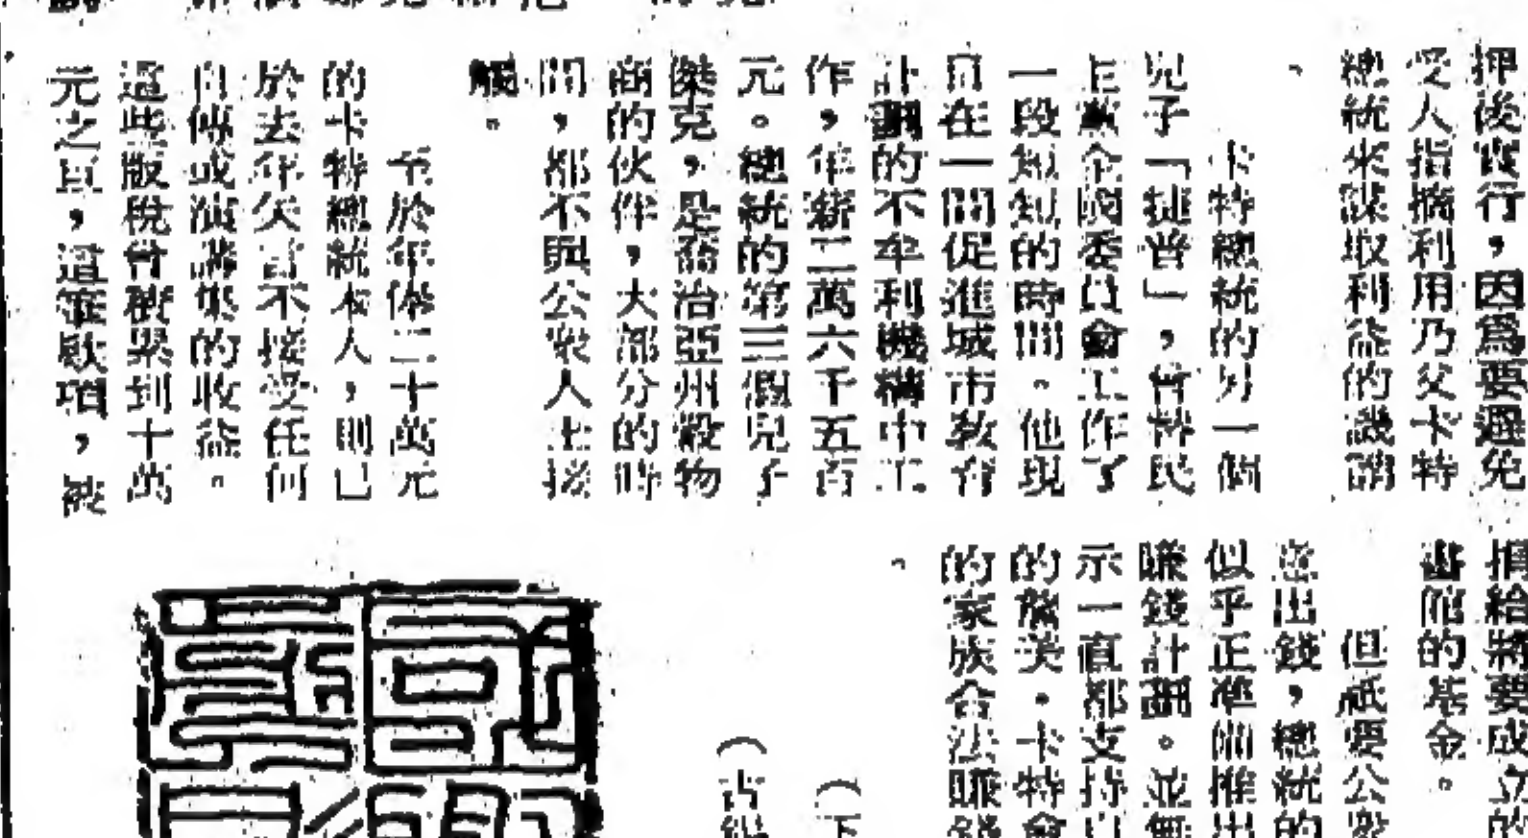 押後實行，因爲要避免
受人指摘利用乃父卡特
總統來謀取利益的譏誚
。
卡特總統的另一個
兒子「捷普」，曾替民
主黨全國委員會工作了
一段短短的時間。他現
在一間促進城市教育
計劃的不牟利機構中工
作，年薪二萬六千五百
元。總統的第三個兒子
傑克，是喬治亞州穀物
商的伙伴，大部分的時
間，都不與公衆人士接
觸。
至於年俸二十萬元
的卡特總統本人，則已
於去年矢言不接受任何
自傳或演講集的收益。
這些版稅曾積累到十萬
元之巨，這筆款項，被
捐給將要成立的
書館的基金。
但祇要公衆
意出錢，總統的
似乎正準備推出
賺錢計劃。並無
示一直都支持
的詹美·卡特會
的家族合法賺錢
。
（下